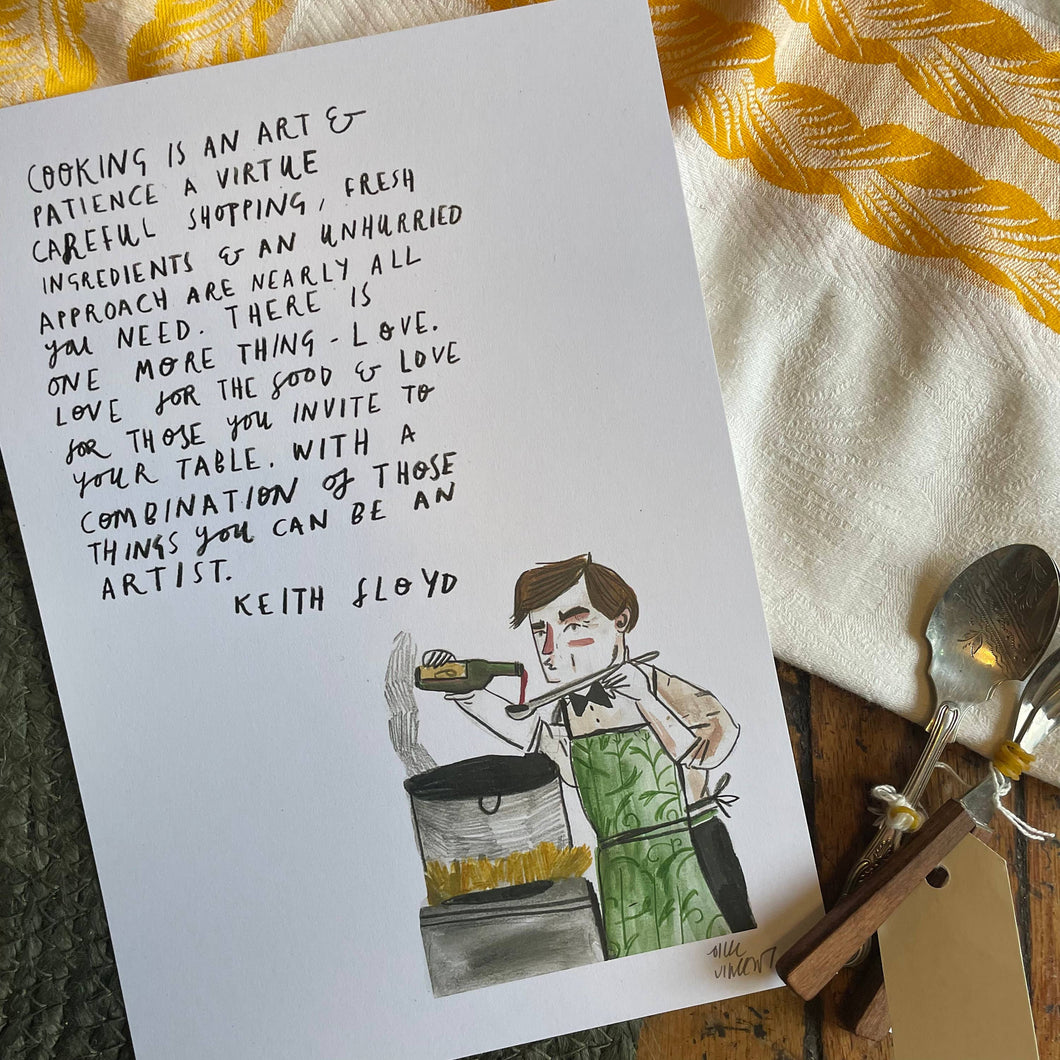 COOKING IS AN ART &
PATIENCE A VIRTUE
CAREFUL SHOPPING, FRESH
INGREDIENTS & AN UNHURRIED
APPROACH ARE NEARLY ALL
you NEED. THERE IS
ONE MORE THING - LOVE.
LOVE FOR THE FOOD & LOVE
FOR THOSE you INVITE TO
YOUR TABLE. WITH A
COMBINATION of THOSE
THINGS you CAN BE AN
ARTIST.
KEITH FLOYD
VINCENT